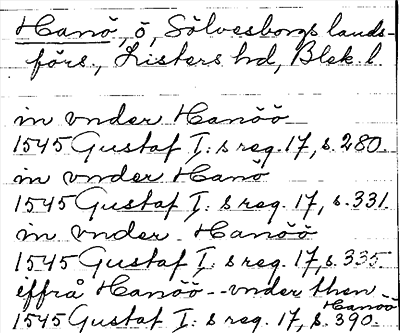 Hanö, ö, Sölvesborgs lands-
förs., Listers hd, Blek. l.
in vnder Hanöö
1545 Gustaf I:s reg. 17, s. 280.
in vnder Hanö
1545 Gustaf I:s reg. 17, s. 331.
in vnder Hanöö
1545 Gustaf I:s reg. 17, s. 335.
iffrå Hanöö -- vnder then
Hanöö
1545 Gustaf I:s reg. 17, s. 390.